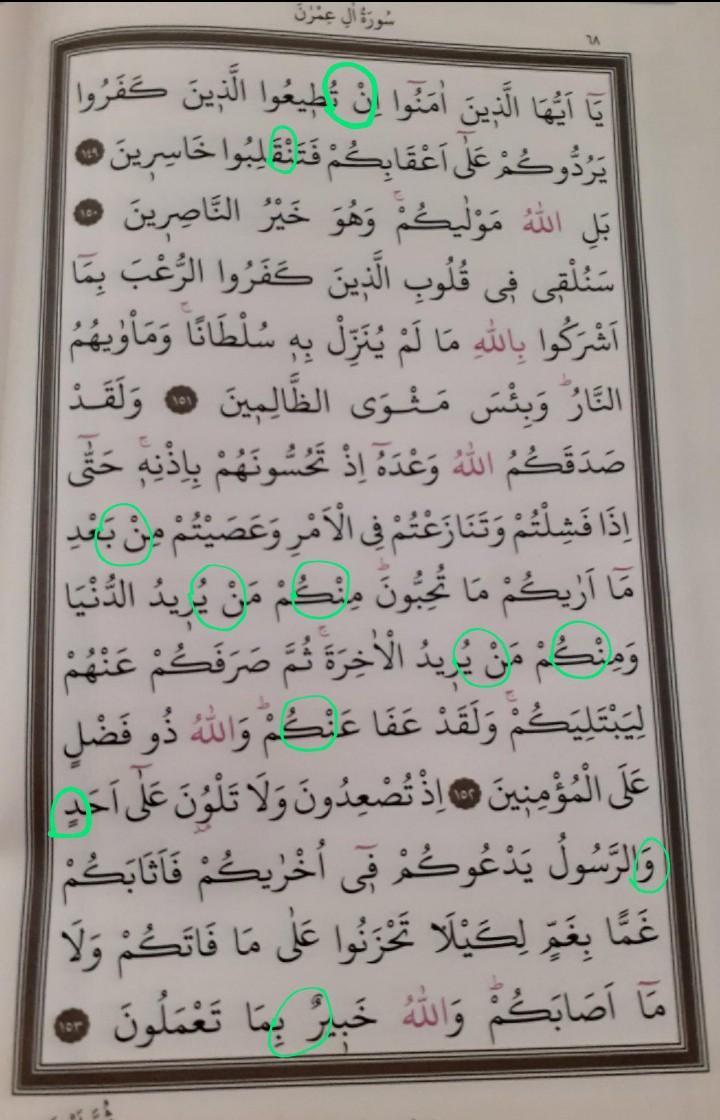 سُورَةُ اٰلِ عِمْرٰنَ
٦٨
يَٓا اَيُّهَا الَّذ۪ينَ اٰمَنُٓوا اِنْ تُط۪يعُوا الَّذ۪ينَ كَفَرُوا
يَرُدُّوكُمْ عَلٰٓى اَعْقَابِكُمْ فَتَنْقَلِبُوا خَاسِر۪ينَ ١٤٩
بَلِ اللّٰهُ مَوْلٰيكُمْۚ وَهُوَ خَيْرُ النَّاصِر۪ينَ ١٥٠
سَنُلْق۪ي ف۪ي قُلُوبِ الَّذ۪ينَ كَفَرُوا الرُّعْبَ بِمَٓا
اَشْرَكُوا بِاللّٰهِ مَا لَمْ يُنَزِّلْ بِه۪ سُلْطَانًاۚ وَمَأْوٰيهُمُ
النَّارُۜ وَبِئْسَ مَثْوَى الظَّالِم۪ينَ ١٥١ وَلَقَدْ
صَدَقَكُمُ اللّٰهُ وَعْدَهُٓ اِذْ تَحُسُّونَهُمْ بِاِذْنِه۪ۚ حَتّٰٓى
اِذَا فَشِلْتُمْ وَتَنَازَعْتُمْ فِي الْاَمْرِ وَعَصَيْتُمْ مِنْ بَعْدِ
مَٓا اَرٰيكُمْ مَا تُحِبُّونَۜ مِنْكُمْ مَنْ يُر۪يدُ الدُّنْيَا
وَمِنْكُمْ مَنْ يُر۪يدُ الْاٰخِرَةَۚ ثُمَّ صَرَفَكُمْ عَنْهُمْ
لِيَبْتَلِيَكُمْۚ وَلَقَدْ عَفَا عَنْكُمْۜ وَاللّٰهُ ذُو فَضْلٍ
عَلَى الْمُؤْمِن۪ينَ ١٥٢ اِذْ تُصْعِدُونَ وَلَا تَلْوُ۫نَ عَلٰٓى اَحَدٍ
وَالرَّسُولُ يَدْعُوكُمْ ف۪ٓي اُخْرٰيكُمْ فَاَثَابَكُمْ
غَمًّا بِغَمٍّ لِكَيْلَا تَحْزَنُوا عَلٰى مَا فَاتَكُمْ وَلَا
مَٓا اَصَابَكُمْۜ وَاللّٰهُ خَب۪يرٌ بِمَا تَعْمَلُونَ ١٥٣